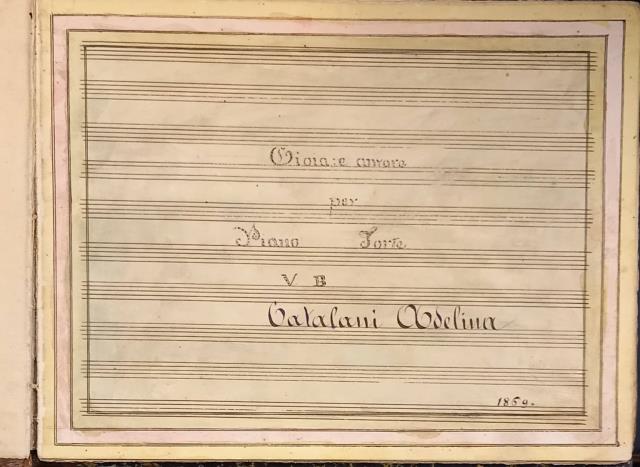 Gioia: e amore
per
Piano Forte
V B
Catalani Adelina
1869.